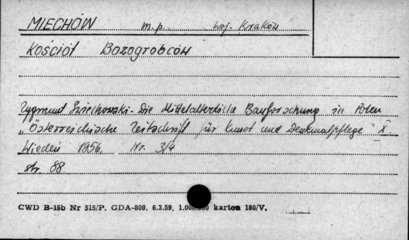 MIECHÓW m.p. woj. Kraków
Kościół Bożogrobców
Zygmunt Świechowski - Die Mittelalterliche Bauforschung in Polen
"Österreichische Zeitschrift für Kunst und Denkmalpflege" X
Wiedeń 1956. Nr. 3/4
str. 88
CWD B-15b Nr 515/P. GDA-809. 6.3.59, 1.000.000 karton 180/V.